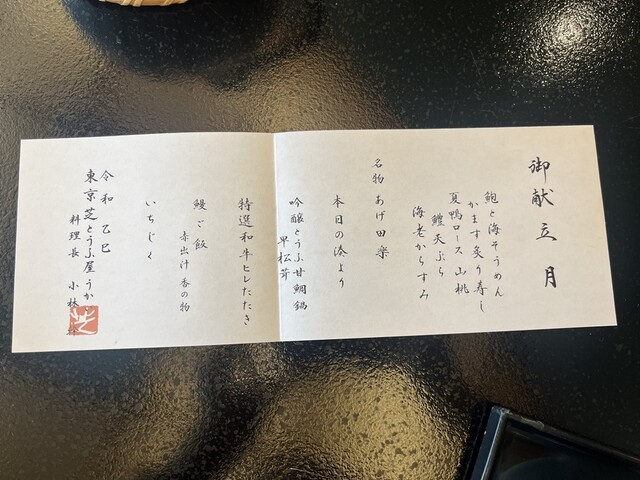 御献立 月
鮑と海そうめん
かます炙り寿し
夏鴨ロース 山桃
鱧天ぷら
海老からすみ
名物 あげ田楽
本日の湊より
吟醸とうふ甘鯛鍋
早松茸
特選和牛ヒレたたき
鰻ご飯
赤出汁 香の物
いちじく
令和 乙巳
東京芝とうふ屋うかい
料理長 小林